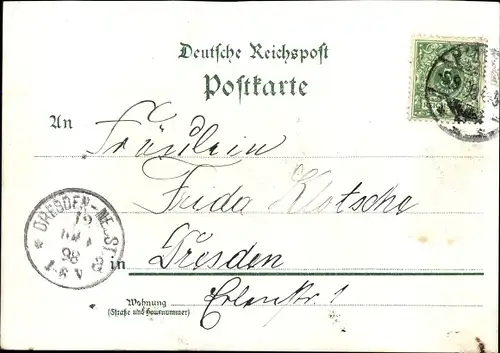 Deutsche Reichspost
Postkarte
An Fräulein
Frida Klotsche
in Dresden
Wohnung Erlenstr. 1
(Straße und Hausnummer)
DRESDEN-NEUST.
98
5